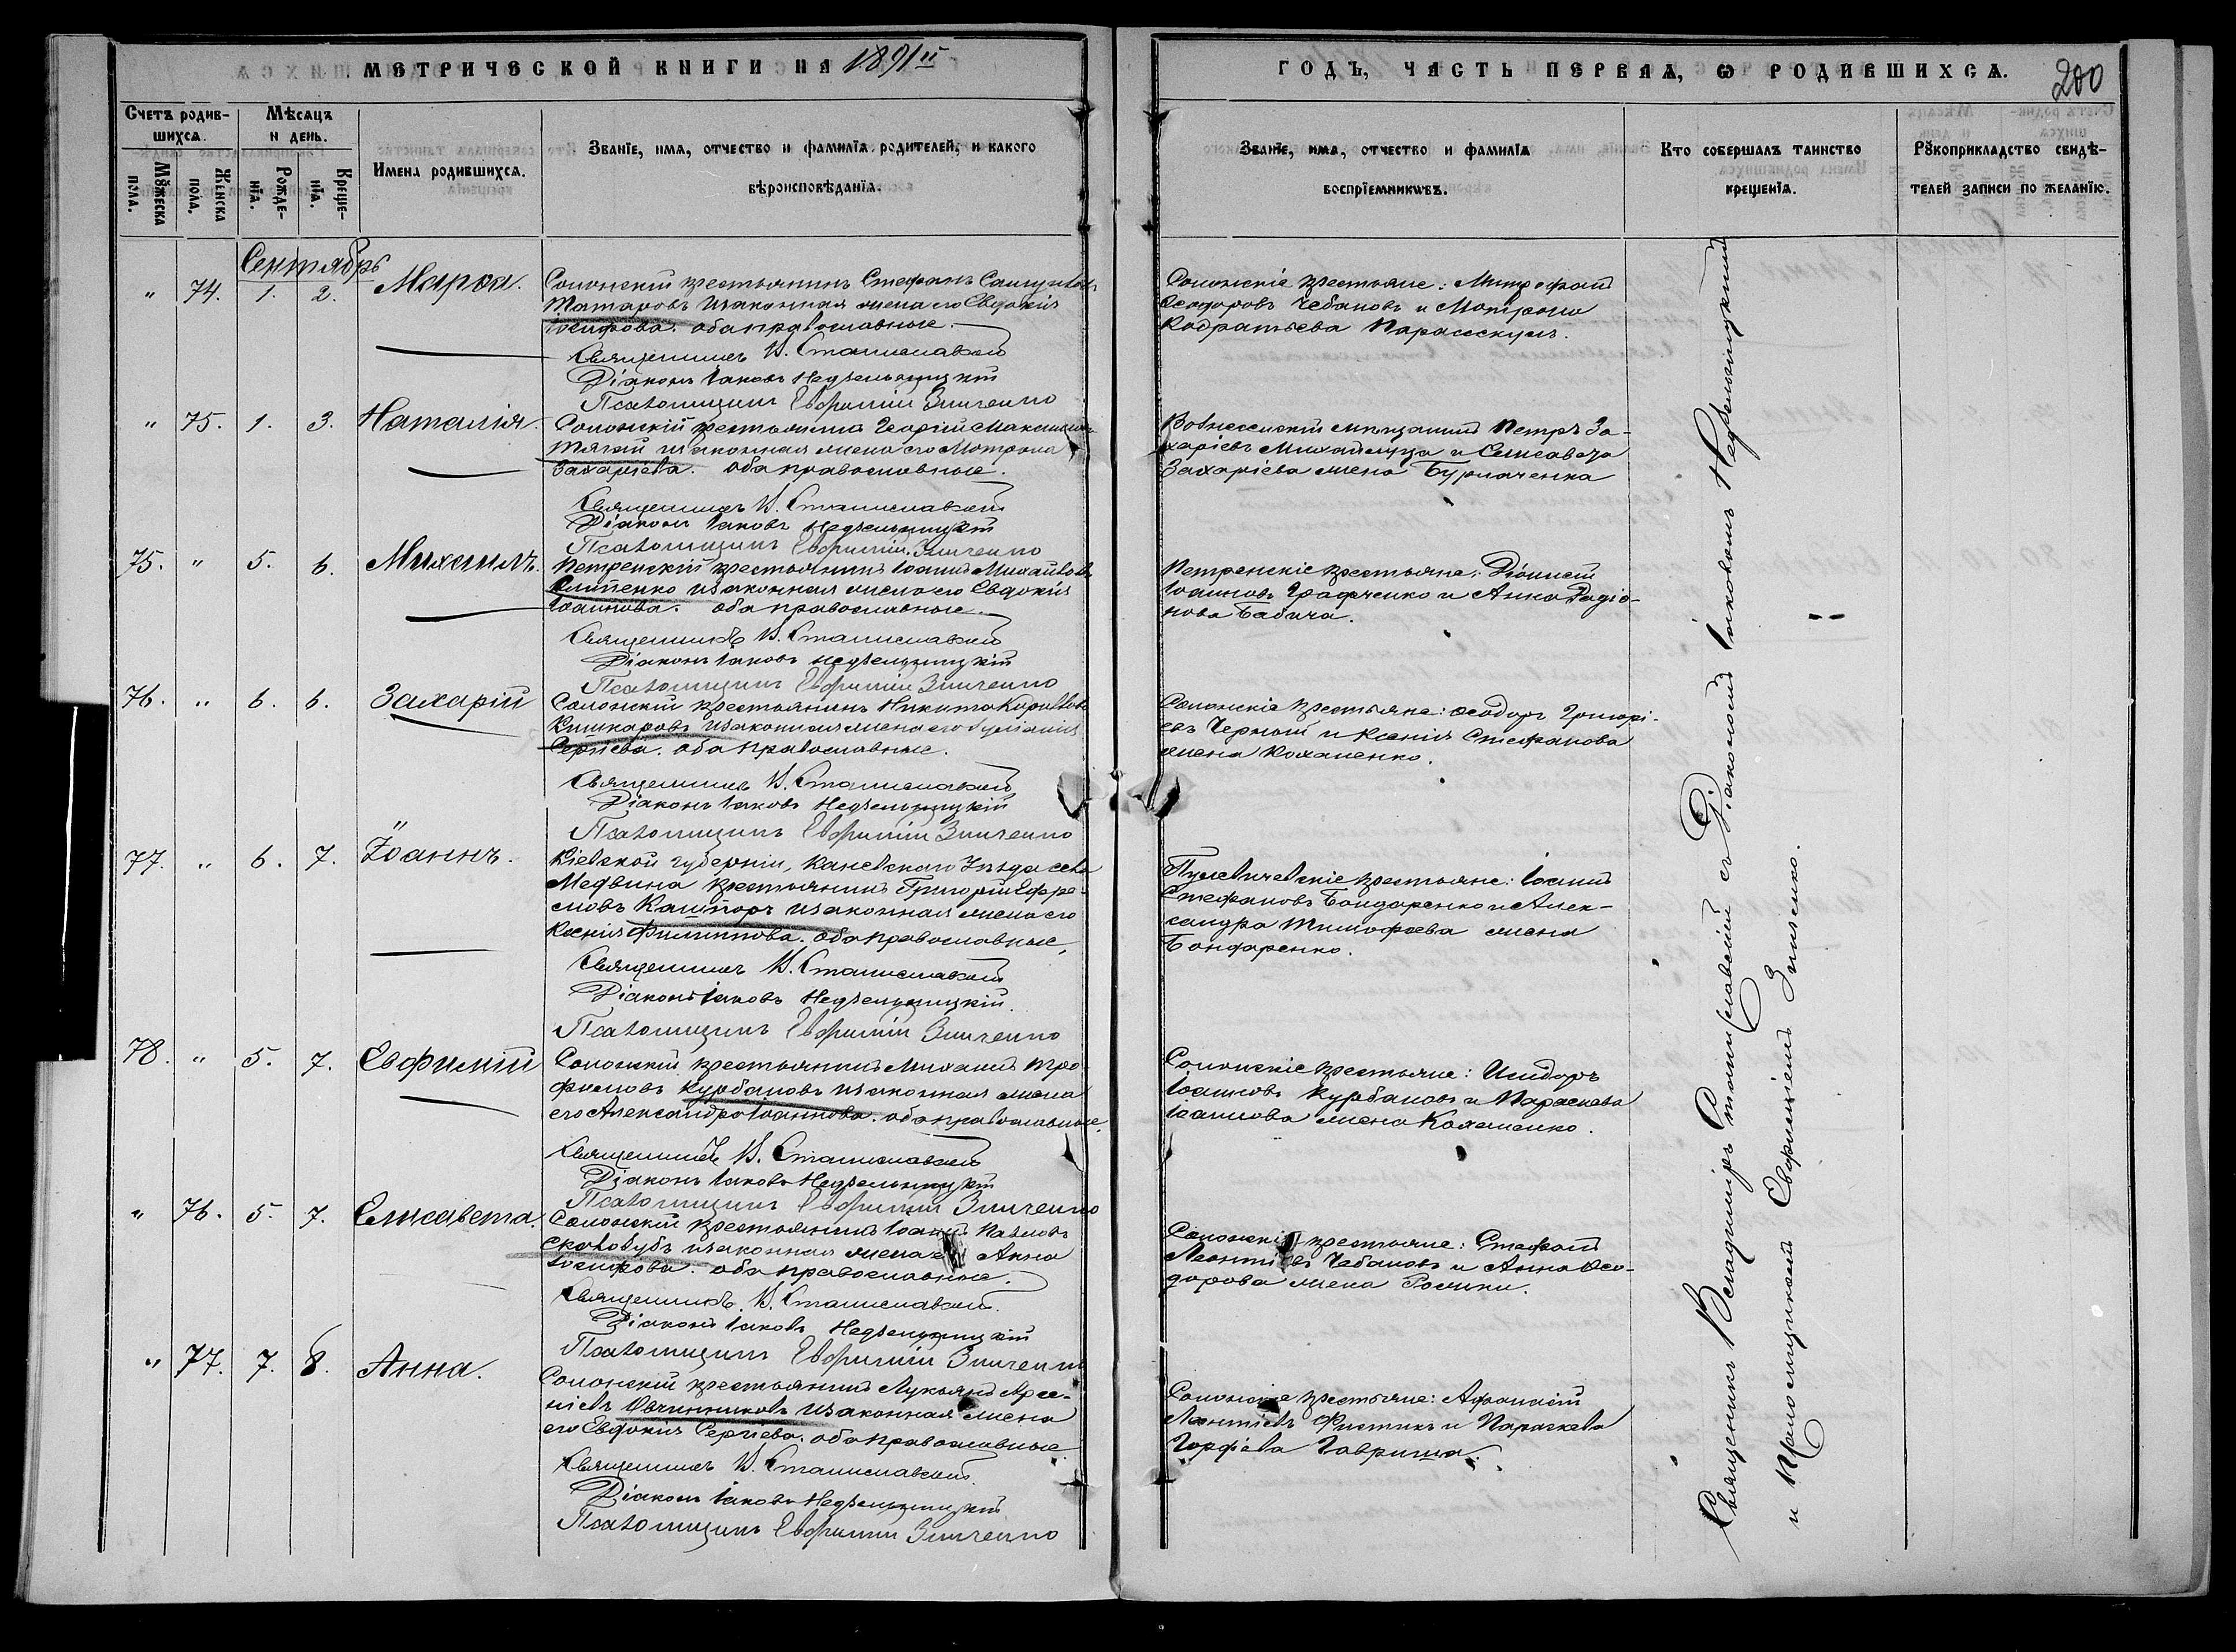 МЕТРИЧЕСКОЙ КНИГИ НА 1891й
ГОДЪ, ЧАСТЬ ПЕРВАѦ, Ѡ РОДИВШИХСѦ.
200
Счетъ родив-
шихсѧ.
Мѣсѧцъ
и день.
Имена родившихсѧ.
Званїе, имѧ, отчество и фамилїѧ родителей, и какого
вѣроисповѣданїѧ.
Мꙋжеска
пола.
Женска
пола.
Рожде-
нїѧ.
Креще-
нїѧ.
Званїе, имѧ, отчество и фамилїѧ
воспрїемникѡвъ.
Кто совершалъ таинство
крещенїѧ.
Рꙋкоприкладство свидѣ-
телей записи по желанїю.
Сентябрь
" 74. 1. 2. Марѳа.
Солонскій крестьянинъ Стефанъ
Татаровъ и законная жена его Евдокія
Іосифова. оба православные.
Священникъ В. Станиславскій
Діаконъ Іаковъ Недзельницкій
Псаломщикъ Евфимій Зинченко
Солонскіе крестьяне: Митрофанъ
Ѳеодоровъ Чебановъ и Матрона
Кодратьева
" 75. 1. 3. Наталія.
Солонскій крестьянинъ Георгій Максимовъ
Тягай и законная жена его Матрона
Захаріева. оба православные.
Священникъ В. Станиславскій
Діаконъ Іаковъ Недзельницкій
Псаломщикъ Евфимій Зинченко
Вознесенскій мѣщанинъ Петръ За-
харіевъ и Елисавета
Захаріева жена Бурлаченка
75. " 5. 6. Михаилъ.
Петренскій крестьянинъ Іоаннъ Михайловъ
и законная жена его Евдокія
Іоаннова. оба православные.
Священникъ В. Станиславскій
Діаконъ Іаковъ Недзельницкій
Псаломщикъ Евфимій Зинченко
Петренскіе крестьяне: Діонисій
Іоанновъ и Анна Радіо-
нова Бабича.
76. " 6. 6. Захарій
Солонскій крестьянинъ Никита Кирилловъ
Кушкаровъ и законная жена его Іуліанія
Сергіева. оба православные.
Священникъ В. Станиславскій
Діаконъ Іаковъ Недзельницкій
Псаломщикъ Евфимій Зинченко
Солонскіе крестьяне: Ѳеодоръ Григорі-
евъ Черный и Ксенія Стефанова
жена Коханенко.
77. " 6. 7. Іоаннъ.
Кіевской губерніи, Каневскаго Уѣзда села
Медвина крестьянинъ Григорій Ефре-
мовъ и законная жена его
Ксенія Филиппова. оба православные.
Священникъ В. Станиславскій
Діаконъ Іаковъ Недзельницкій
Псаломщикъ Евфимій Зинченко
крестьяне: Іоаннъ
Стефановъ Бондаренко и Алек-
сандра Тимофеева жена
Бондаренко.
78. " 5. 7. Евфимій
Солонскій крестьянинъ Михаилъ Тро-
фимовъ Курбановъ и законная жена
его Александра Іоаннова. оба православные.
Священникъ В. Станиславскій
Діаконъ Іаковъ Недзельницкій
Псаломщикъ Евфимій Зинченко
Солонскіе крестьяне: Исидоръ
Іоанновъ Курбановъ и Параскева
Іоаннова жена Коханенко.
" 76. 5. 7. Елисавета.
Солонскій крестьянинъ Іоаннъ Павловъ
и законная жена его Анна
Іосифова. оба православные.
Священникъ В. Станиславскій.
Діаконъ Іаковъ Недзельницкій
Псаломщикъ Евфимій Зинченко
Солонскіе крестьяне: Стефанъ
Леонтіевъ Чебановъ и Анна Ѳео-
дорова жена
" 77. 7. 8. Анна.
Солонскій крестьянинъ Лукьянъ Арсе-
ніевъ Овчинниковъ и законная жена
его Евдокія Сергіева. оба православные
Священникъ В. Станиславскій.
Діаконъ Іаковъ Недзельницкій
Псаломщикъ Евфимій Зинченко
Солонскіе крестьяне: Афанасій
Леонтіевъ и Параскева
Гавриша.
Священникъ Владиміръ Станиславскій съ Діакономъ Іаковомъ Недзельницкимъ
и Псаломщикомъ Евфиміемъ Зинченко.